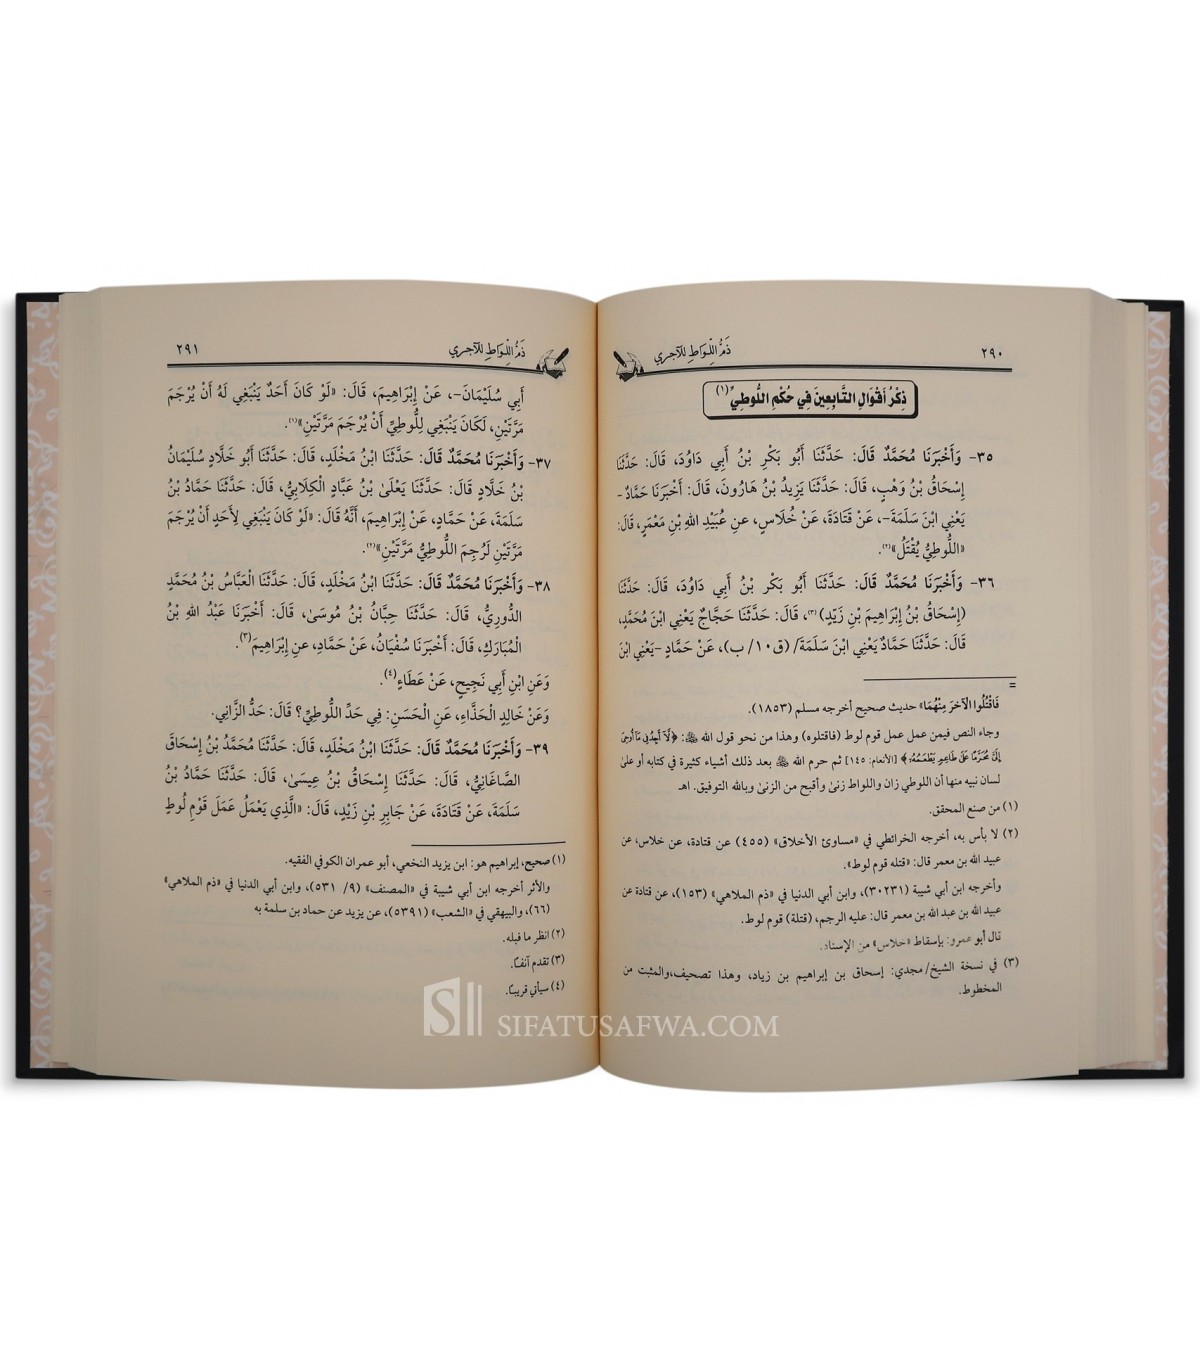 ٢٩٠
ذَمُّ اللِّوَاطِ للآجري
ذِكْرُ أَقْوَالِ التَّابِعِينَ فِي حُكْمِ اللُّوطِيِّ (١)
٣٥- وَأَخْبَرَنَا مُحَمَّدٌ قَالَ: حَدَّثَنَا أَبُو بَكْرِ بْنُ أَبِي دَاوُدَ، قَالَ: حَدَّثَنَا
إِسْحَاقُ بْنُ وَهْبٍ، قَالَ: حَدَّثَنَا يَزِيدُ بْنُ هَارُونَ، قَالَ: أَخْبَرَنَا حَمَّادٌ -
يَعْنِي ابْنَ سَلَمَةَ-، عَنْ قَتَادَةَ، عَنْ خُلَاسٍ، عن عُبَيْدِ اللهِ بْنِ مَعْمَرٍ، قَالَ:
«اللُّوطِيُّ يُقْتَلُ»(٢).
٣٦- وَأَخْبَرَنَا مُحَمَّدٌ قَالَ: حَدَّثَنَا أَبُو بَكْرِ بْنُ أَبِي دَاوُدَ، قَالَ: حَدَّثَنَا
(إِسْحَاقُ بْنُ إِبْرَاهِيمَ بْنِ زَيْدٍ)(٣)، قَالَ: حَدَّثَنَا حَجَّاجٌ يَعْنِي ابْنَ مُحَمَّدٍ،
قَالَ: حَدَّثَنَا حَمَّادٌ يَعْنِي ابْنَ سَلَمَةَ/ (ق١٠/ ب)، عَنْ حَمَّادٍ -يَعْنِي ابْنَ
=
فَاقْتُلُوا الآخَرَ مِنْهُمَا» حديث صحيح أخرجه مسلم (١٨٥٣).
وجاء النص فيمن عمل عمل قوم لوط (فاقتلوه) وهذا من نحو قول الله ﷻ: ﴿لَّآ أَجِدُ فِي مَآ أُوحِيَ
إِلَيَّ مُحَرَّمًا عَلَىٰ طَاعِمٖ يَطۡعَمُهُۥٓ﴾ [الأنعام: ١٤٥] ثم حرم الله ﷻ بعد ذلك أشياء كثيرة في كتابه أو على
لسان نبيه منها أن اللوطي زان واللواط زنىٰ وأقبح من الزنىٰ وبالله التوفيق. اهـ
(١) من صنع المحقق.
(٢) لا بأس به، أخرجه الخرائطي في «مساوئ الأخلاق» (٤٥٥) عن قتادة، عن خلاس، عن
عبيد الله بن معمر قال: «قتله قوم لوط».
وأخرجه ابن أبي شيبة (٣٠٢٣١)، وابن أبي الدنيا في «ذم الملاهي» (١٥٣)، عن قتادة عن
عبيد الله بن عبد الله بن معمر قال: عليه الرجم، (قتلة) قوم لوط.
قال أبو عمرو: بإسقاط «خلاس» من الإسناد.
(٣) في نسخة الشيخ/مجدي: إسحاق بن إبراهيم بن زياد، وهذا تصحيف،والمثبت من
المخطوط.
ذَمُّ اللِّوَاطِ للآجري
٢٩١
أَبِي سُلَيْمَانَ-، عَنْ إِبْرَاهِيمَ، قَالَ: «لَوْ كَانَ أَحَدٌ يَنْبَغِي لَهُ أَنْ يُرْجَمَ
مَرَّتَيْنِ، لَكَانَ يَنْبَغِي لِلُّوطِيِّ أَنْ يُرْجَمَ مَرَّتَيْنِ»(١).
٣٧- وَأَخْبَرَنَا مُحَمَّدٌ قَالَ: حَدَّثَنَا ابْنُ مَخْلَدٍ، قَالَ: حَدَّثَنَا أَبُو خَلَّادٍ سُلَيْمَانُ
بْنُ خَلَّادٍ قَالَ: حَدَّثَنَا يَعْلَىٰ بْنُ عَبَّادٍ الْكِلَابِيُّ، قَالَ: حَدَّثَنَا حَمَّادُ بْنُ
سَلَمَةَ، عَنْ حَمَّادٍ، عَنْ إِبْرَاهِيمَ، أَنَّهُ قَالَ: «لَوْ كَانَ يَنْبَغِي لِأَحَدٍ أَنْ يُرْجَمَ
مَرَّتَيْنِ لَرُجِمَ اللُّوطِيُّ مَرَّتَيْنِ»(٢).
٣٨- وَأَخْبَرَنَا مُحَمَّدٌ قَالَ: حَدَّثَنَا ابْنُ مَخْلَدٍ، قَالَ: حَدَّثَنَا الْعَبَّاسُ بْنُ مُحَمَّدٍ
الدُّورِيُّ، قَالَ: حَدَّثَنَا حِبَّانُ بْنُ مُوسَىٰ، قَالَ: أَخْبَرَنَا عَبْدُ اللهِ بْنُ
الْمُبَارَكِ، قَالَ: أَخْبَرَنَا سُفْيَانُ، عَنْ حَمَّادٍ، عن إِبْرَاهِيمَ(٣).
وَعَنِ ابْنِ أَبِي نَجِيحٍ، عَنْ عَطَاءٍ(٤).
وَعَنْ خَالِدٍ الْحَذَّاءِ، عَنِ الْحَسَنِ: فِي حَدِّ اللُّوطِيِّ؟ قَالَ: حَدُّ الزَّانِي.
٣٩- وَأَخْبَرَنَا مُحَمَّدٌ قَالَ: حَدَّثَنَا ابْنُ مَخْلَدٍ، قَالَ: حَدَّثَنَا مُحَمَّدُ بْنُ إِسْحَاقَ
الصَّاغَانِيُّ، قَالَ: حَدَّثَنَا إِسْحَاقُ بْنُ عِيسَىٰ، قَالَ: حَدَّثَنَا حَمَّادُ بْنُ
سَلَمَةَ، عَنْ قَتَادَةَ، عَنْ جَابِرِ بْنِ زَيْدٍ، قَالَ: «الَّذِي يَعْمَلُ عَمَلَ قَوْمِ لُوطٍ
(١) صحيح، إبراهيم هو: ابن يزيد النخعي، أبو عمران الكوفي الفقيه.
والأثر أخرجه ابن أبي شيبة في «المصنف» (٩/ ٥٣١)، وابن أبي الدنيا في «ذم الملاهي»
(٦٦)، والبيهقي في «الشعب» (٥٣٩١)، عن يزيد عن حماد بن سلمة به
(٢) انظر ما قبله.
(٣) تقدم آنفًا.
(٤) سيأتي قريبًا.
SIFATUSAFWA.COM